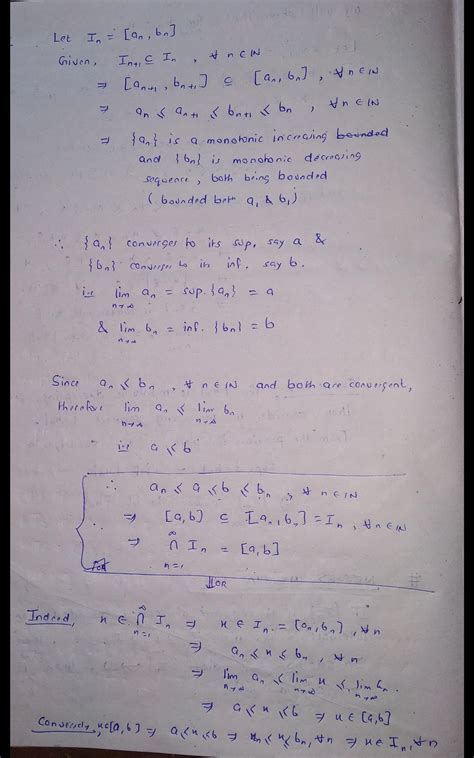 Let Iₙ = [aₙ, bₙ]
Given, Iₙ₊₁ ⊆ Iₙ , ∀ n∈ℕ
⇒ [aₙ₊₁, bₙ₊₁] ⊆ [aₙ, bₙ] , ∀ n∈ℕ
⇒ aₙ ⩽ aₙ₊₁ ⩽ bₙ₊₁ ⩽ bₙ , ∀ n∈ℕ
⇒ {aₙ} is a monotonic increasing bounded
and {bₙ} is monotonic decreasing
sequence, both being bounded
(bounded betⁿ a₁ & b₁)
∴ {aₙ} converges to its sup. say a &
{bₙ} converges to its inf. say b.
i.e. lim n→∞ aₙ = sup.{aₙ} = a
& lim n→∞ bₙ = inf. {bₙ} = b
Since aₙ ⩽ bₙ , ∀ n∈ℕ and both are convergent,
therefore lim n→∞ aₙ ⩽ lim n→∞ bₙ
i.e. a ⩽ b
∴ aₙ ⩽ a ⩽ b ⩽ bₙ , ∀ n∈ℕ
⇒ [a,b] ⊆ [aₙ, bₙ] = Iₙ , ∀ n∈ℕ
⇒ ∞ ∩ n=1 Iₙ = [a,b]
OR
Indeed, x ∈ ∞ ∩ n=1 Iₙ ⇒ x ∈ Iₙ = [aₙ, bₙ] , ∀ n
⇒ aₙ ⩽ x ⩽ bₙ , ∀ n
⇒ lim n→∞ aₙ ⩽ lim n→∞ x ⩽ lim n→∞ bₙ.
⇒ a ⩽ x ⩽ b ⇒ x ∈ [a,b]
Conversely, x∈[a,b] ⇒ a⩽x⩽b ⇒ aₙ⩽x⩽bₙ, ∀n ⇒ x∈Iₙ, ∀n